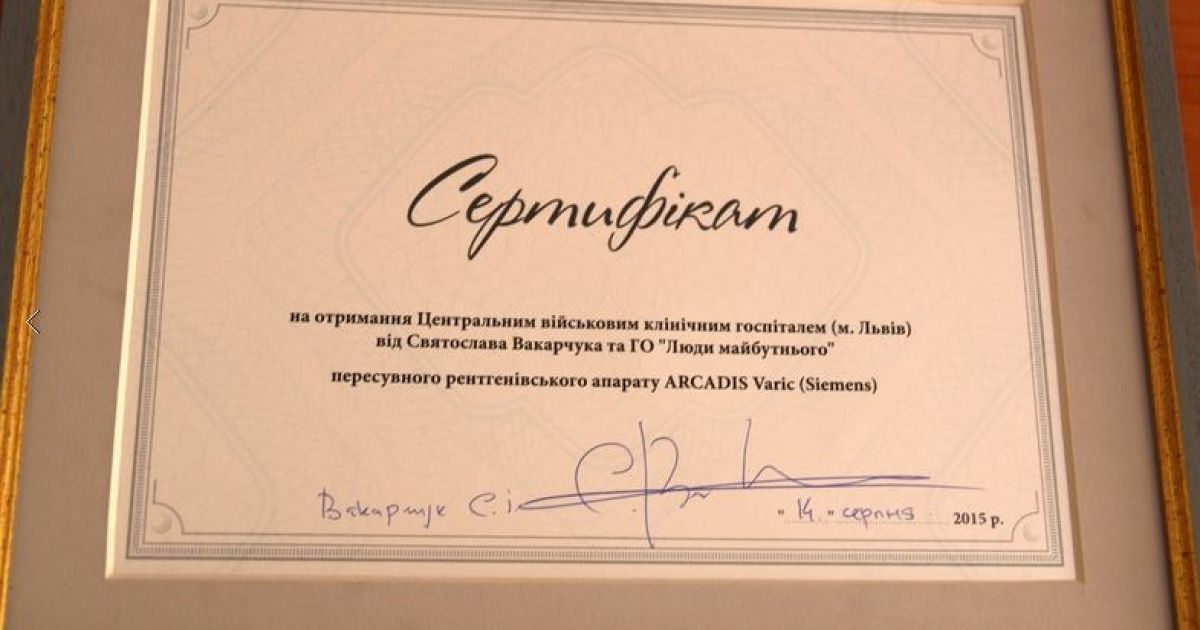 Сертифікат
на отримання Центральним військовим клінічним госпіталем (м. Львів)
від Святослава Вакарчука та ГО "Люди майбутнього"
пересувного рентгенівського апарату ARCADIS Varic (Siemens)
Вакарчук С.І.
"14" серпня 2015 р.